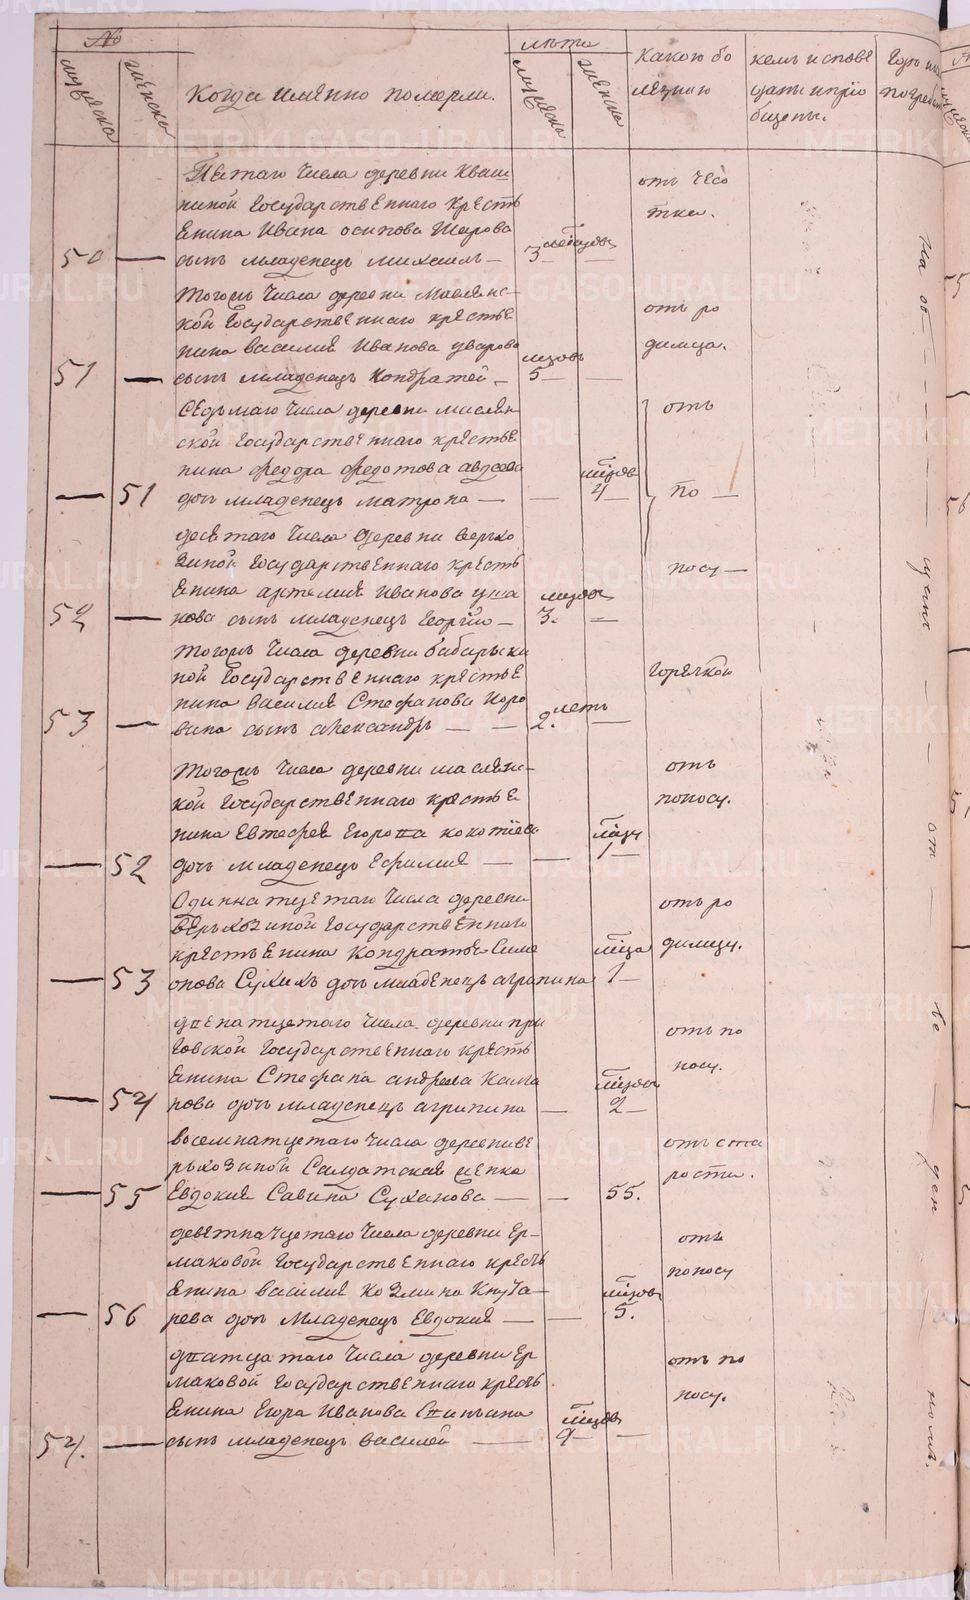 №
лета
мужеска
женска
Когда имянно померли.
мужеска
женска
Какою бо
лезнию
кемъ испове
даны и приѡ
бщены.
Пятаго числа деревни Кваш
ниной Государственнаго кресть
янина Ивана осипова Шарова
50 — сынъ младенецъ михаилъ — 3 месяцовъ —
отъ чесо
тки.
тогожъ числа деревни маслян-
ской Государственнаго крестья
нина василия Иванова уварова
51 — сынъ младенецъ Кондратей — 5 мцовъ —
отъ ро
димца.
седьмаго числа деревни маслян
ской Государственнаго крестья
нина федора федотова
— 51 дочь младенецъ матрона — — 4 мцовъ
отъ
по —
десятаго числа деревни верхо
зиной Государственнаго кресть
янина артемия Иванова
52 — нова сынъ младенецъ Георгий — 3. мцовъ —
носу —
тогожъ числа деревни бабарыки
ной Государственнаго крестья
нина василия Стефанова Коро
53 — вина сынъ александръ — — 2. летъ —
горячкой
тогожъ числа деревни маслян-
ской Государственнаго крестья
нина Евтефея Егорова
— 52 дочь младенецъ Ефимия — — 1 —
отъ
поносу.
Одиннатцетаго числа деревни
верхозиной Государственнаго
крестьянина Кондратья Сима
— 53 онова Сухихъ дочь младенецъ агрипина 1 — мца
отъ ро
димцу.
двенатцетаго числа деревни
Государственнаго кресть
янина Стефана андреева
— 54 нова дочь младенецъ агрипина — 2 — мцовъ
отъ по
носу.
восемнатцетаго числа деревни ве
рьхозиной Салдатская женка
— 55 Евдокия Савина Суханова — — 55.
отъ ста
рости.
девятнатцетаго числа деревни Ер-
маковой Государственнаго кресть
янина василия Козмина
— 56 рева дочь младенецъ Евдокия — — 5. мцовъ
отъ
поносу
дватцатаго числа деревни Ер
маковой Государственнаго кресть
янина Егора Иванова
54. — сынъ младенецъ василей — 9 мцовъ —
отъ по
носу.
METRIKI.GASO-URAL.RU